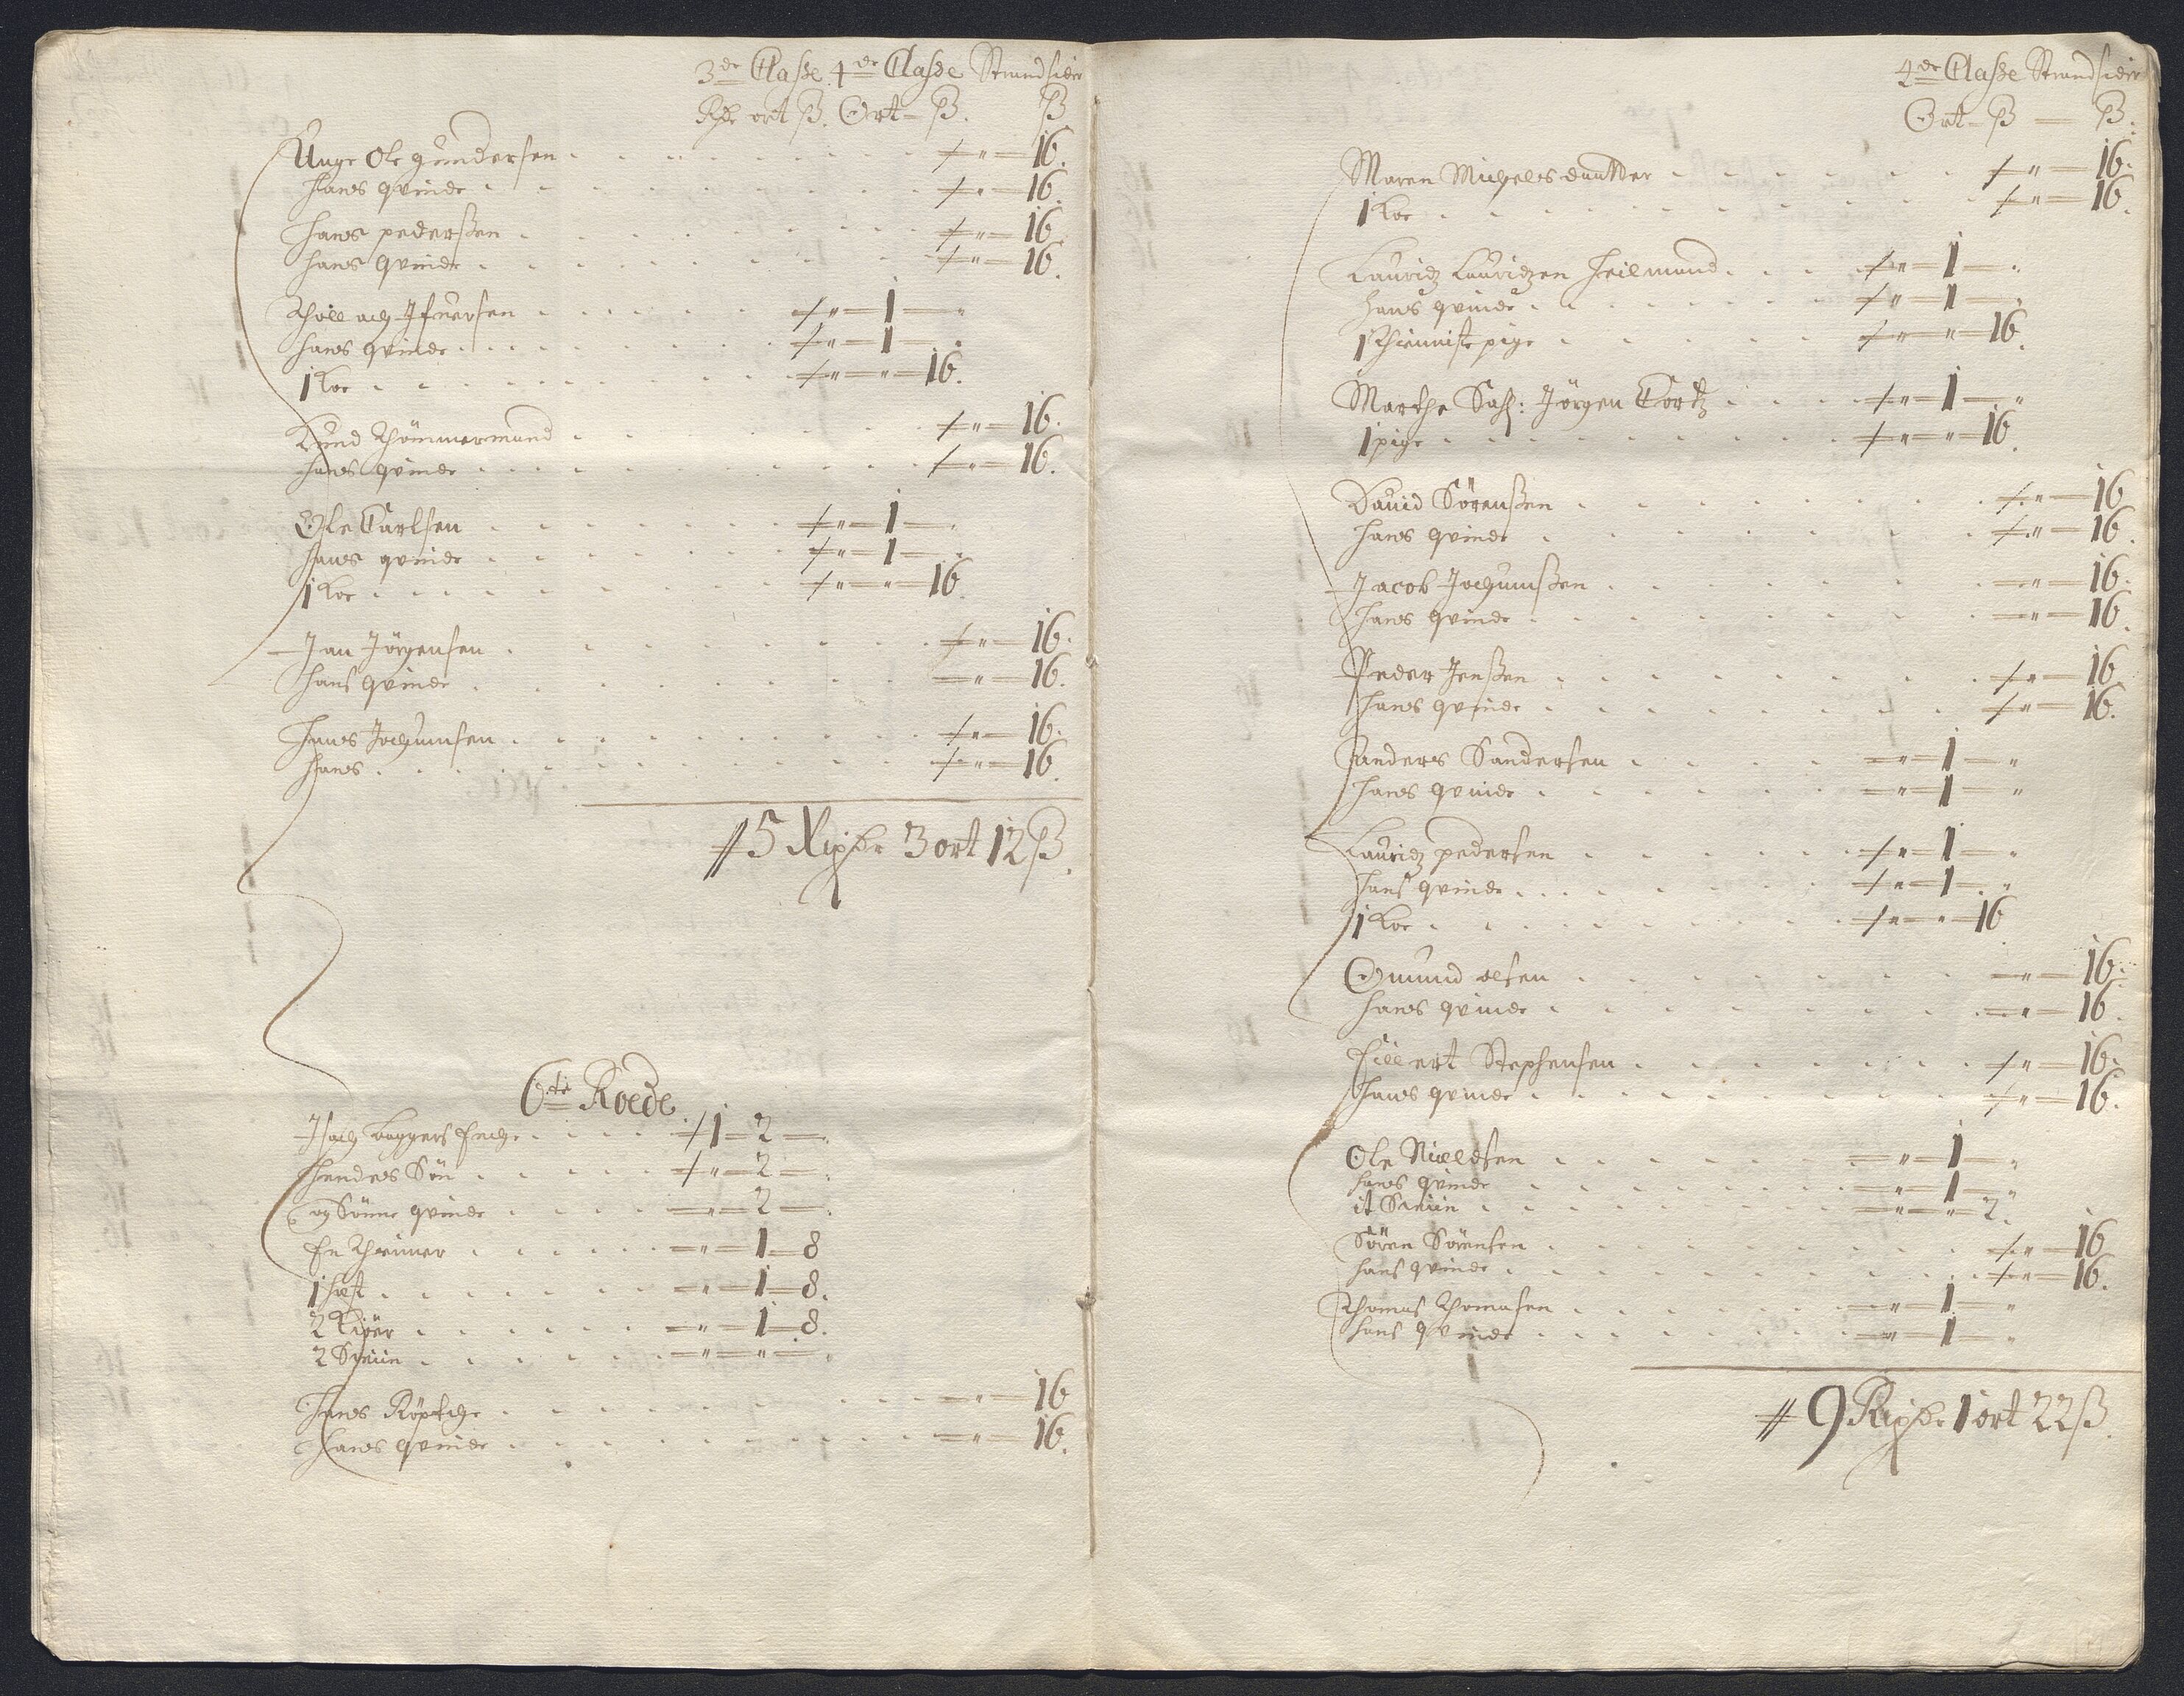 3de Classe 4de Classe Strandsider
Rdr ort ß. Ort - ß. ß
Unge Ole gundersen 16.
hans qvinde 16.
hans pederßen 16
hans qvinde 16.
Iffuersen 1
hans qvinde 1
1 Koe 16.
Knud Thömmermand 16.
hans qvinde 16.
Ole Carlsen 1
hans qvinde 1
1 Koe 16.
Jan Jörgensen 16.
hans qvinde 16.
Hans Jochumsen 16.
hans 16.
5 Rixdr 3 ort 12 ß.
6te Roede
baggers 1 - 2
Sön 2
og Sönne qvinde 2
En Thienner 1 - 8
1 hest 1 - 8.
2 Kiöer 1 - 8.
2 Sviin
Hans 16
hans qvinde 16.
4de Classe Strandsider
Ort - ß ß.
Maren Michelsdautter 16.
1 Koe 16.
Lauridz Lauridzen Feilmand 1
hans qvinde 1
1 Thienniste pige 16.
Marthe Sahl: Jörgen Cortz 1
1 pige 16.
David Sörenßen 16
hans qvinde 16.
Jacob Jochumßen 16.
hans qvinde 16.
Peder Jenßen 16
hans qvinde 16.
Anders Sandersen 1
hans qvinde 1
Lauridz pedersen 1
hans qvinde 1
1 Koe 16
Omund olsen 16.
hans qvinde 16.
Ellert Stephensen 16.
hans qvinde 16.
Ole Nielsen 1
hans qvinde 1
it Sviin 2.
Sören Sörensen 16
hans qvinde 16.
Thomas Thomasen 1
hans qvinde 1
9 Rixdr 1 ort 22 ß.